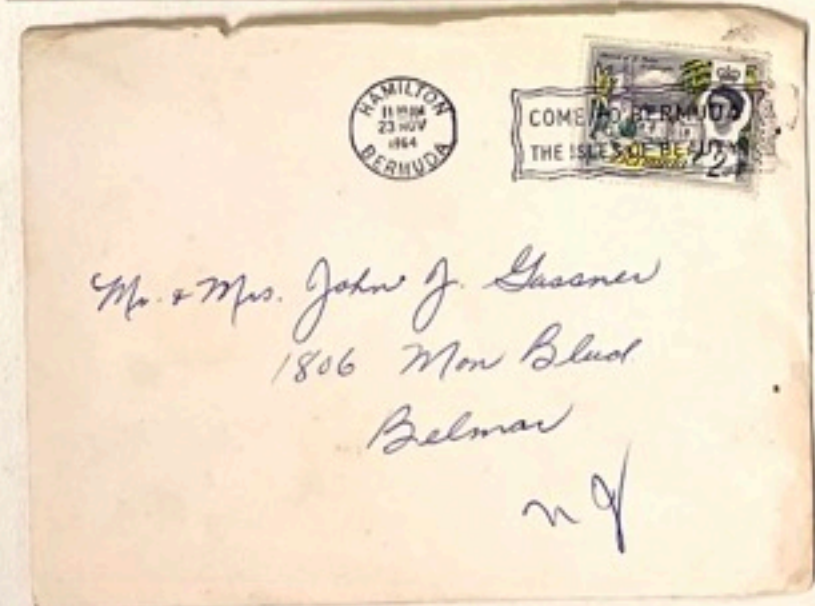 HAMILTON
23 NOV
1964
BERMUDA
COME TO BERMUDA
THE ISLES OF BEAUTY
Mr. & Mrs. John J. Gassner
1806 Mon Blvd
Belmar
N J